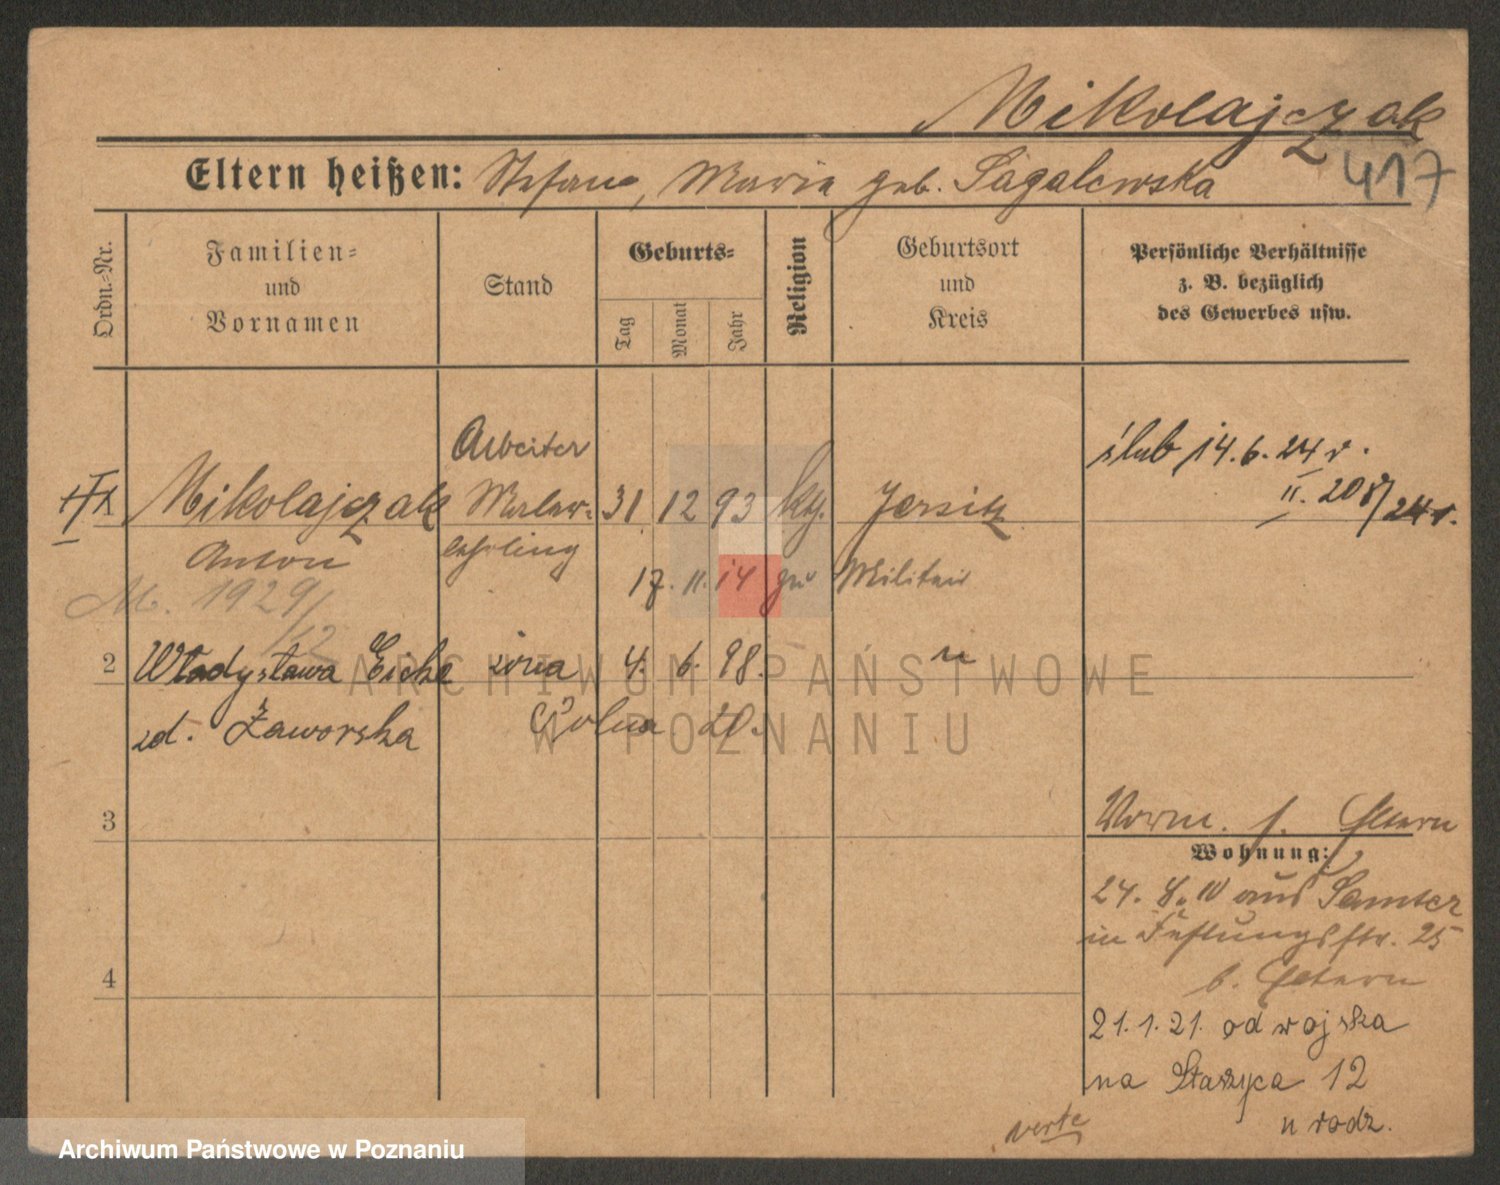 Mikolajczak
417
Eltern heißen: Stefan, Maria geb. Sagalewska
Ordn.-Nr.
Familien-
und
Vornamen
Stand
Geburts-
Tag
Monat
Jahr
Religion
Geburtsort
und
Kreis
Persönliche Verhältnisse
z. B. bezüglich
des Gewerbes usw.
Arbeiter
ślub 14.6.24 r.
Mikolajczak Maler- 31 12 93 kth. Jersitz
II. 208/24 r.
Anton lehrling
17. 11. 14 zu Militair
M. 1929/12
2 Władysława Eicha żona 4. 6. 98. "
zd. Zaworska
3
Worm. s. Eltern
Wohnung:
24. 8. 10 aus Samter
in Festungsstr. 25
b. Eltern
4
21.1.21. od wojska
na Staszyca 12
u rodz.
verte
ARCHIWUM PAŃSTWOWE
W POZNANIU
Archiwum Państwowe w Poznaniu